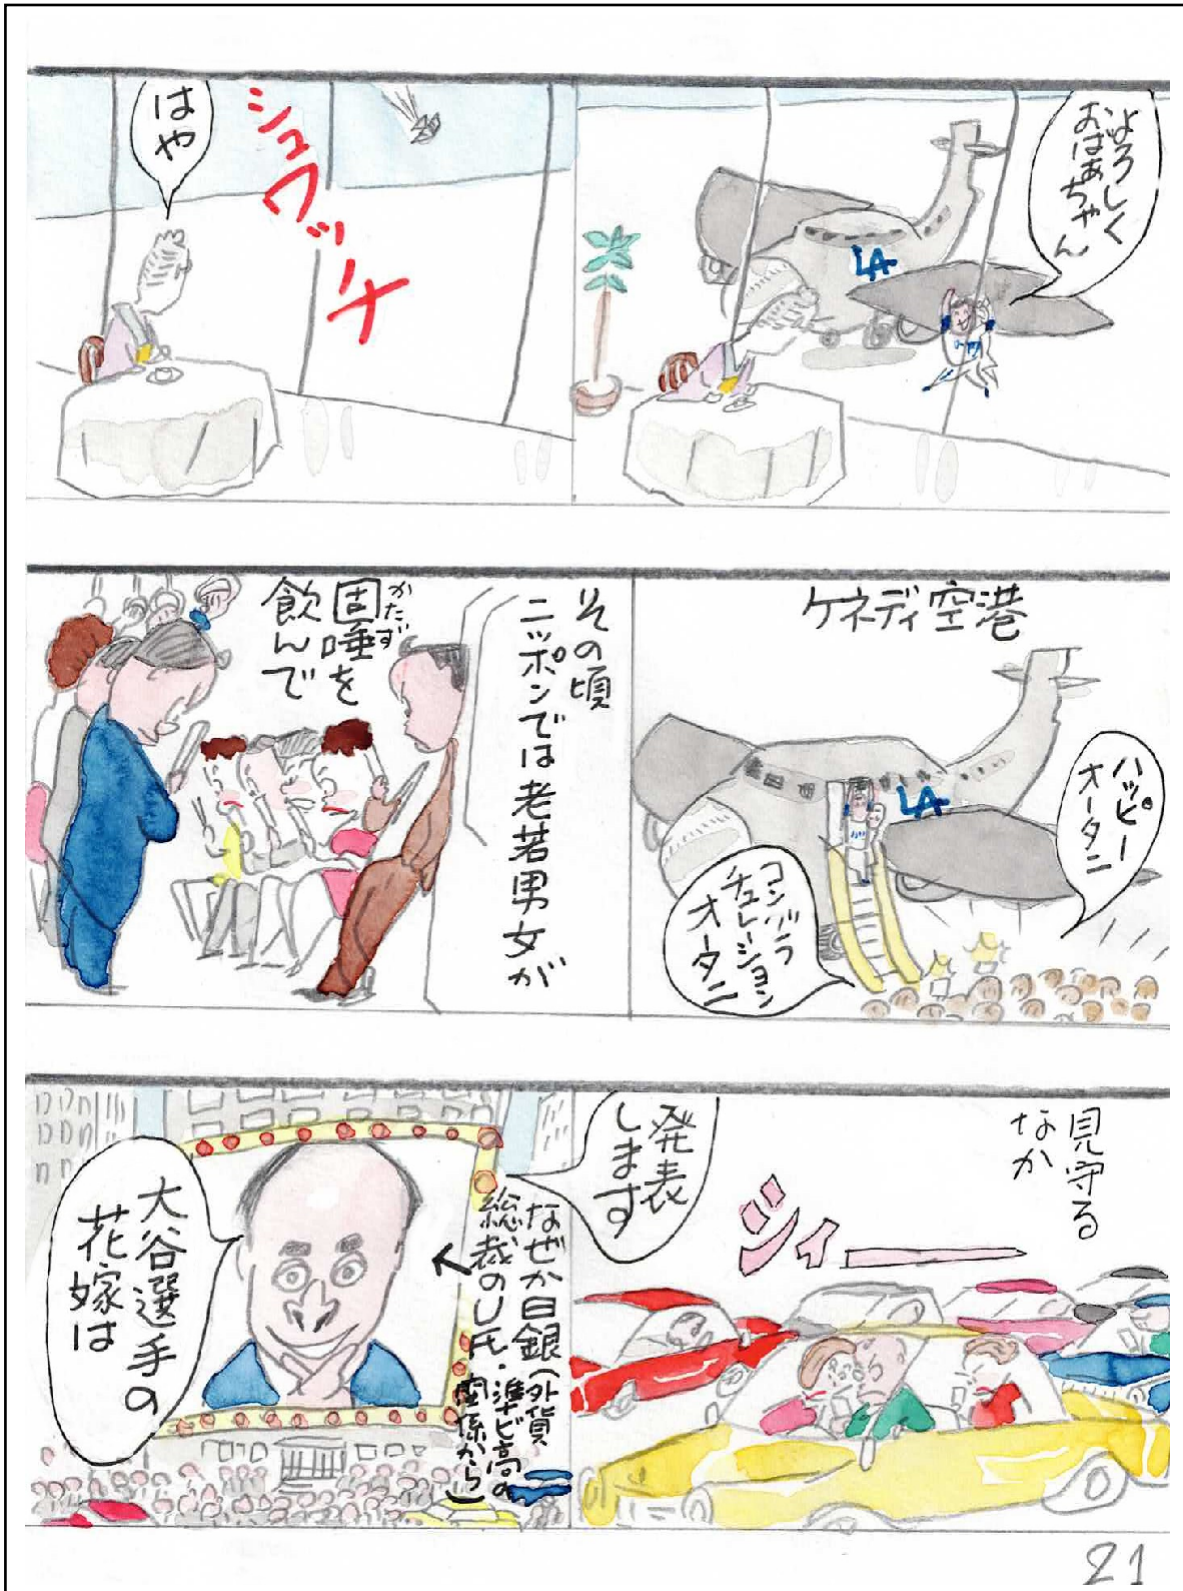 よろしく
おばあちゃん
LA
シュワッチ
はや
ケネディ空港
ハッピー
オータニ
LA
コングラ
チュレーション
オータニ
その頃
ニッポンでは老若男女が
固唾を
かたず
飲んで
見守る
なか
シィー
発表
します
なぜか日銀(外貨
総裁のU氏・準ビ高の
関係から)
大谷選手の
花嫁は
21